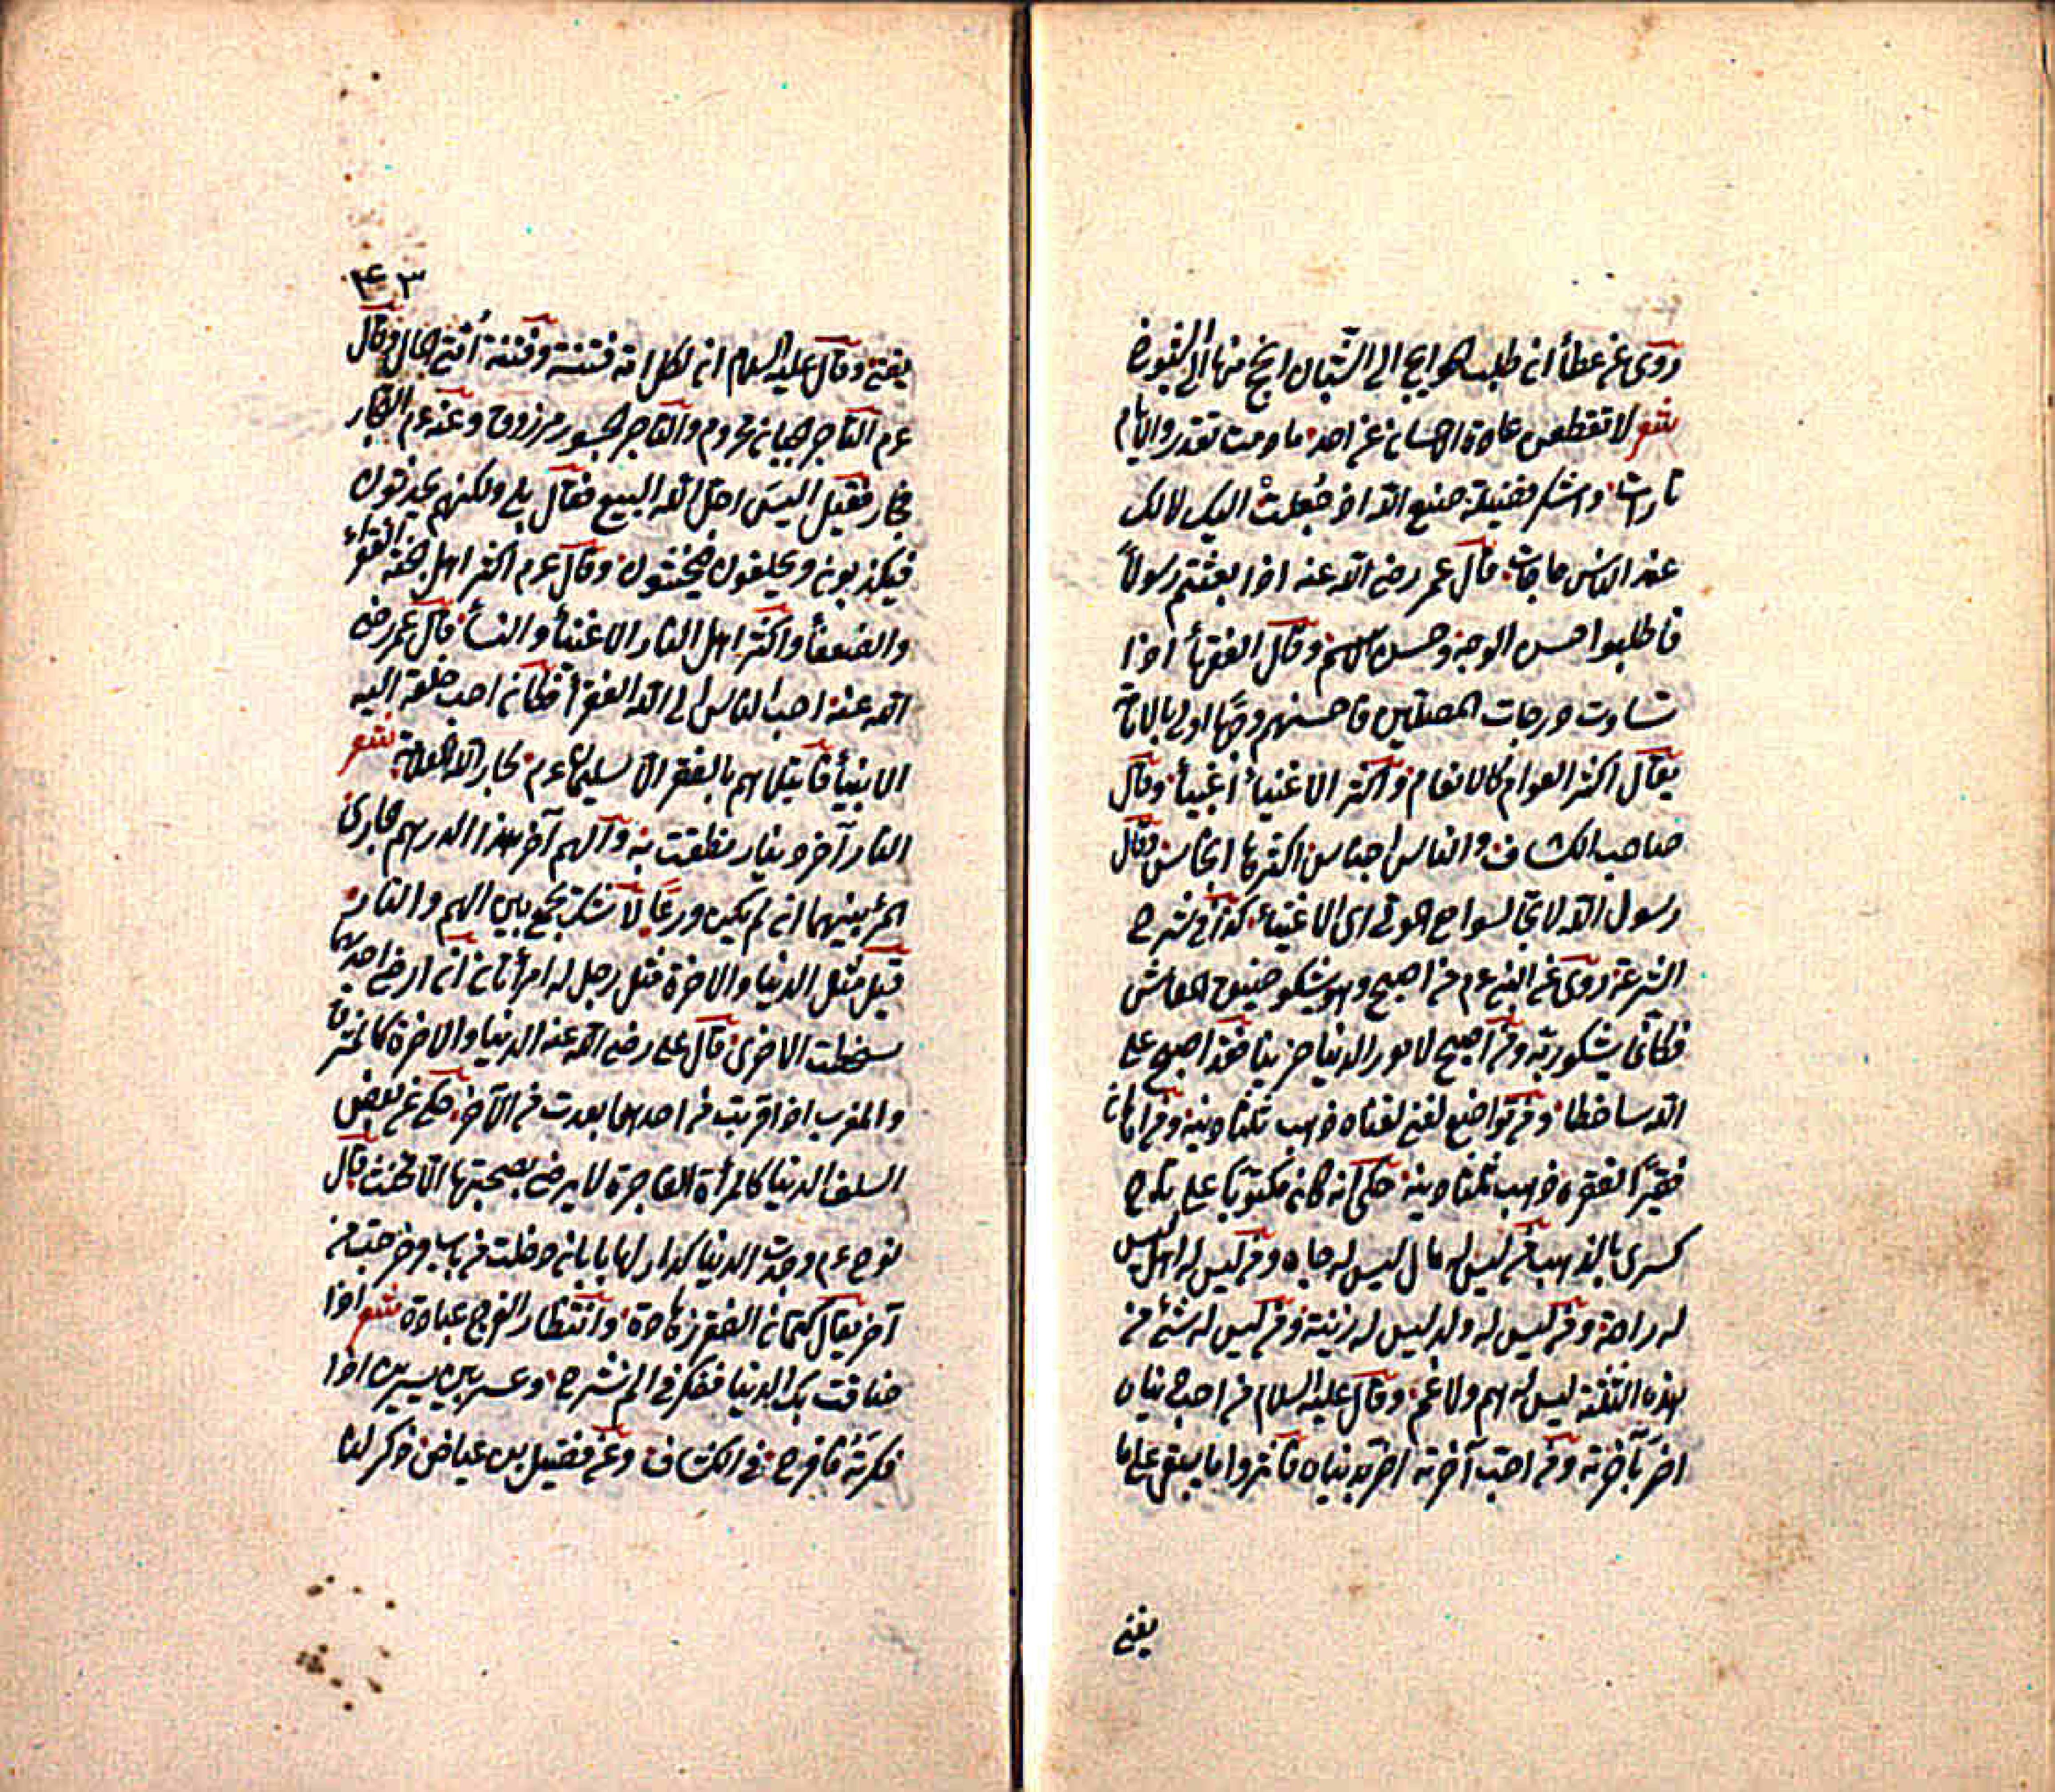 روى عن عطأ انه طلب الحوايج الى الشبان انجح منها الى الشيوخ
شعر لا تقطعن عادة الاحسان عن احد ما دمت تقدر والايام
تارات واشكر فضيلة صنع الله اذ جُعلتْ اليك لا لك
عند الناس حاجات قال عمر رضى الله عنه اذا بعثتم رسولاً
فاطلبوا حسن الوجه وحسن الاسم وقال الفقهأ اذا
تساوت درجات المصلين فاحسنهم وجهًا اولى بالامامة
يقال اكثر العوام كالانعام واكثر الاغنيأ اغبيأ وقال
صاحب الكشاف والناس اجناس اكثرها انجاس وقال
رسول الله لا تجالسوا مع الموتى اى الاغنياء كذا فى شرح
الشرعة روى عن النبى عم من اصبح وهو يشكو ضيق المعاش
فكانما يشكو ربه ومن اصبح لامور الدنيا حزينا فقد اصبح على
الله ساخطا ومن تواضع لغنى لغناه ذهب ثلثا دينه ومن اهان
فقيرًا لفقره ذهب ثلثا دينه حكى انه كان مكتوبًا على تاج
كسرى بالذهب من ليس له مال ليس له جاه ومن ليس له اهل ليس
له راحة ومن ليس له ولد ليس له زينة ومن ليس له شئ من
هذه الثلثة ليس له هم ولا غم وقال عليه السلام من احب دنياه
اضر بآخرته ومن احب آخرته اضر بدنياه فآثروا ما يبقى على ما
يفنى
٤٣
يفنى وقال عليه السلام ان لكل امة فتنة وفتنة اُمّتى المال وقال
عم التاجر الجبان محروم والتاجر الجسور مرزوق وعنه عم التجار
فجار فقيل اليس احل الله البيع فقال بلى ولكنهم يحدثون
فيكذبون ويحلفون فيحنثون وقال عم اكثر اهل الجنة الفقراء
والضعفأ واكثر اهل النار الاغنيأ والنسأ قال عمر رضى
الله عنه احب الناس الى الله الفقرأ فكان احب خلقه اليه
الانبيأ فابتلاهم بالفقر الا سليمان عم شعر
النار آخر دينار نطقت به والهم آخر هذا الدرهم الجارى
المرء بينهما ان لم يكن ورعًا لا شك يجمع بين الهم والنار
قيل مثل الدنيا والاخرة مثل رجل له امرأتان ان ارضى احديهما
سخطت الاخرى قال على رضى الله عنه الدنيا والاخرة كالمشرق
والمغرب اذا قربت من احدهما بعدت من الآخر حكى عن بعض
السلف الدنيا كالمرأة الفاجرة لا يرضى بصحبتها الا مخنث قال
نوح عم وجدت الدنيا كدار لها بابان دخلت من باب وخرجت من
آخر يقال كتمان الفقر زهادة وانتظار الفرج عبادة شعر اذا
ضاقت بك الدنيا ففكر فى الم نشرح وعسر بين يسرين اذا
فكرتَه فافرح فى الكشاف وعن فضيل بن عياض ذكر لنا